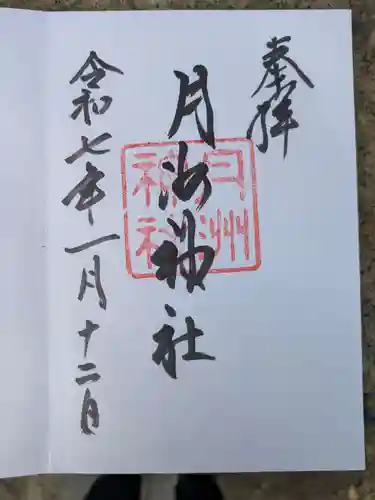 奉拝
月洲神社
月洲神社
令和七年一月十二日